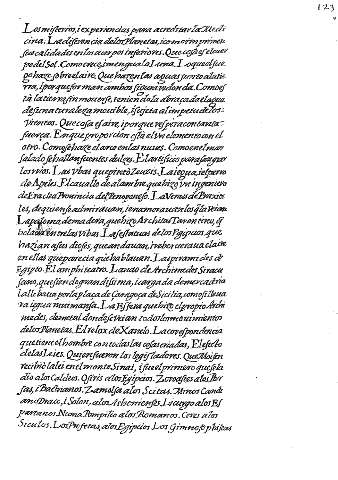 123
Los misterios, i experiencias para acreditar la Medi-
cina. La diferencia de los Planetas, i como imprimen
sus calidades en los cuerpos inferiores. Que cosa es el cuer
po del Sol. Como crece, i mengua la Luna. Lo que el fue
go haze sobre el aire. Que hazen las aguas junto a la tie
rra, i porque forman ambos
ta la tierra sin moverse, teniendola abraçada el agua
de su naturaleza movible, i sujeta al impetu de los
vientos. Que cosa es aire, i porque respira con tanta
fuerça. En que proporcion està el un elemento con el
otro. Como se haze el arco en las nuves. Como en el mar
salado se hallan fuentes dulces. El artificio para
los rios. Las Ubas que pintò Zeuxis. La iegua, i el perro
de Apeles. El cavallo de alambre, que hizo un ingeniero
de Eraclea Provincia del Peloponeso. La Venus de Praxite
les, de quien se admiravan, i enamoravan los que la veian
La paloma de madera, que hizo Architas Tarentino, q̃
bolava entre las Ubas. Las estatuas de los Egypcios, que
hazian a sus dioses, que andavan, i reberverava el aire
en ellas que parecia que hablavan. Las piramides de
Egypto. El amphiteatro. La nao de Archimedes Siracu
sano, que siendo grandissima, i cargada de mercaderia
la llebava por la plaça de Çaragoça de Sicilia, como si llevara
ra iegua mui mansa. La Esfera que hizo Archi
medes, de metal donde se veian todos los movimientos
de los Planetas. El relox de Xanelo. La correspondencia
que tiene el hombre con todas las cosas criadas, El efeto
de las Leies. Quien fueron los legisladores. Que Moisen
recibiò la lei en el monte Sinai, i fue el primero que la
dio a los Caldeos. Osiris a los Egipcios. Zoroastes a los Per
sas, i Bactrianos. Zamolsa a los Scitas. Minos Candi
ano Draco, i Solon, a los Athenienses. Licurgo a los Es
partanos. Numa Pompilio a los Romanos. Ceres a los
Siculos. Los Profetas, a los Egipcios. Los Gimnosophistas